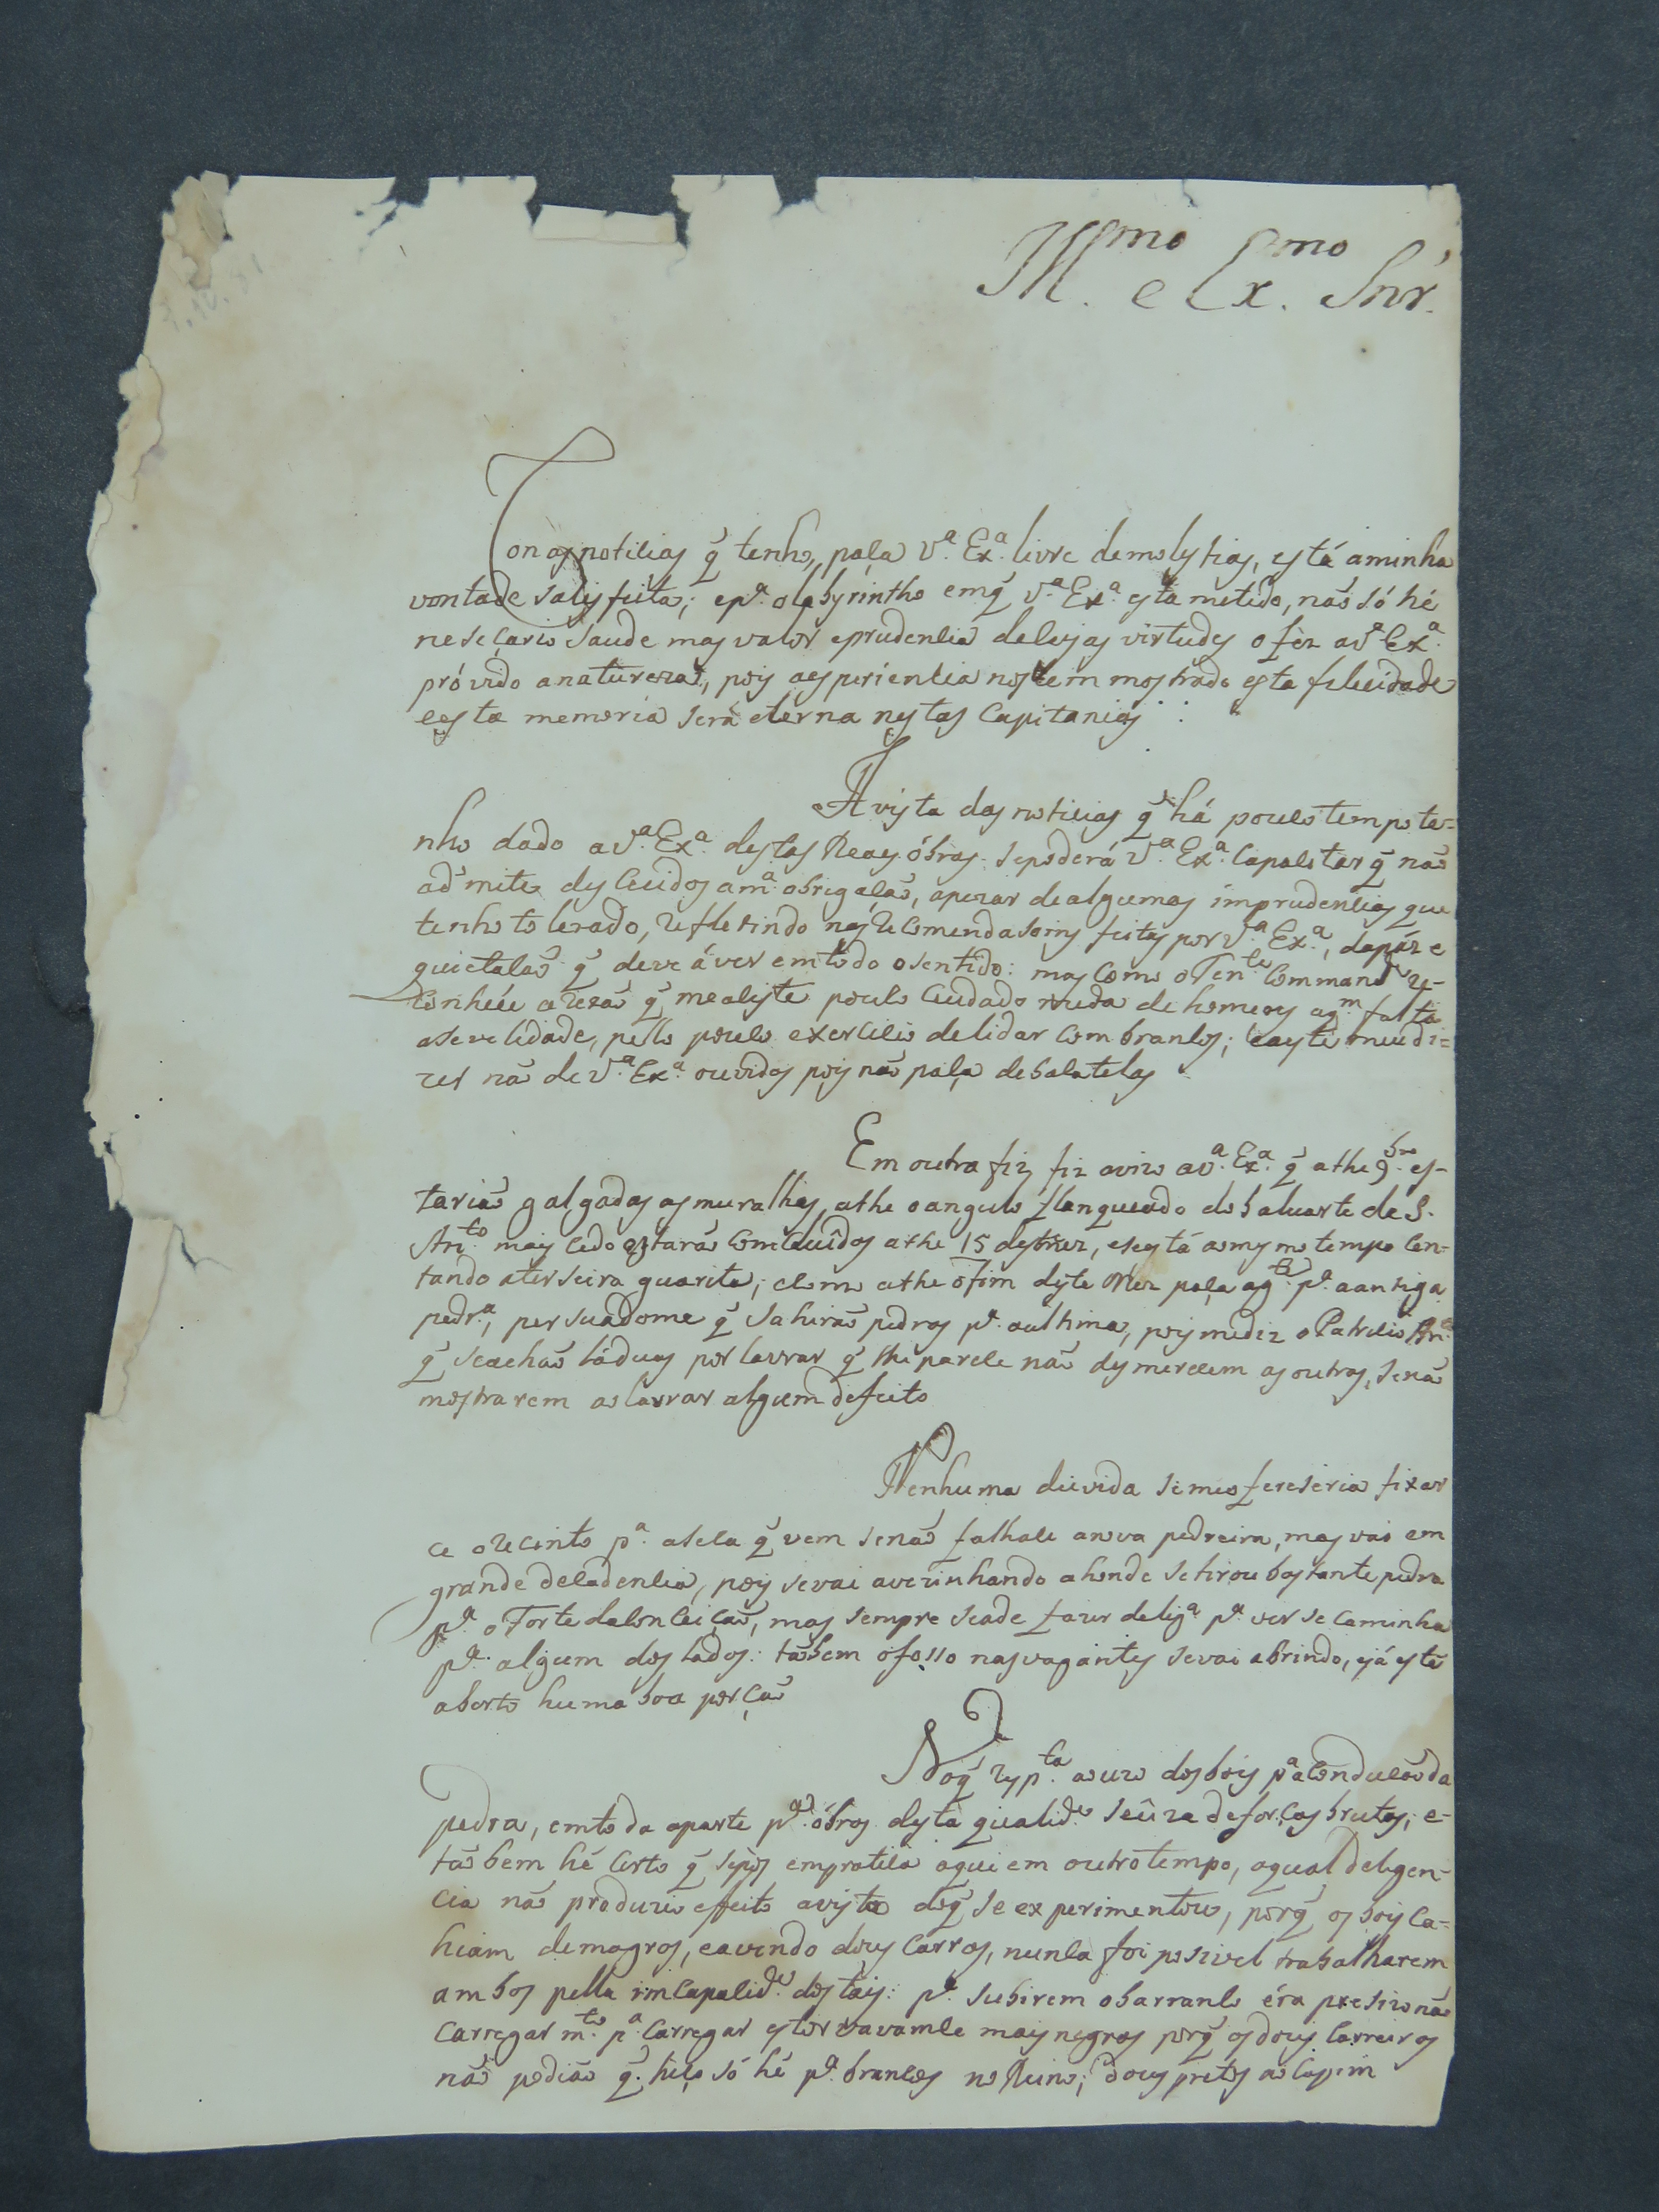 Ill.mo e Ex.mo Snr.
Con as noticias q̃ tenho, paça V.ª Ex.ª livre demolestias, está aminha
vontade satisfeita; ep.ª olabyrintho emq̃ V.ª Ex.ª esta metido, naõ só hé
neseçario saude mas valor eprudencia decujas virtudes o fez aV.ª Ex.ª
próvido anatureza, pois aesperiencia nos tem mostrado esta felicidade
eesta memoria será eterna nestas Capitanias
Avista das noticias q̃ há pouco tempo te-
nho dado aV.ª Ex.ª destas Reaes óbras sepoderá V.ª Ex.ª Capacitar q̃ naõ
admite descuidos am.ª obrigaçaõ, apezar dealgumas imprudencias que
tenho tolerado, refletindo nas recomendasoins feitas por V.ª Ex.ª, dapáz e
quietaçaõ q̃ deve áver emtodo osentido: mas Como oTen.te Command.e re-
Conhece arezaõ q̃ mealiste pouco Cuidado muda de homens aq.m falta
aseveridade, pello pouco exercicio delidar Com brancos; eaeste meu di-
zer naõ de V.ª Ex.ª ouvidos pois naõ paça debalatelas
Em outra fiz aviso aV.ª Ex.ª q̃ athe 9.bro es-
tariaõ galgadas asmuralhas, athe oangulo flanqueado do baluarte de S.
Ant.o mais cedo estaraõ Comcluîdos athe 15 deste mez, eseestá aomesmo tempo Cen-
tando aterseira guarita; eComo athe ofim deste Mez paça ag.te p.ª aantiga
pedr.ª, persuadome q̃ Sahiraõ pedras p.ª aulthima, pois mediz oPatricio Ant.o
q̃ seachaõ láduas por lavrar q̃ lhe parece naõ desmerecem asoutras, senaõ
mostrarem aolavrar algum defeito
Nenhuma duvida semeofereseria fixar
ce orecinto p.ª aseca q̃ vem senaõ falhace anova pedreira, mas vai em
grande decadencia, pois sevai avezinhando ahonde setirou bastante pedra
p.ª oForte daConceiçaõ, mas sempre seade fazer delig.ª p.ª ver se Caminha
p.ª algum dos lados: taõbem ofosso nasvagantes sevai abrindo, ejá está
aberto huma boa porçaõ
Noq̃ resp.ta aouzo dosbois p.ª aConduçaõda
pedra, emtoda aparte p.ª óbras desta qualid.e seûza deforças brutas; e-
taõbem hé Certo q̃ sepôs empratica aqui em outro tempo, aqual deligen-
cia naõ produzio effeito avista doq̃ se experimentou, porq̃ os bois Ca-
hiam demagros, eavendo dous Carros, nunca foi posivel trabalharem
ambos pella imCapacid.e dos tais: p.ª subirem obarranco éra presizo naõ
Carregar m.to p.ª Carregar estorvavamce mais negros porq̃ osdous Carreiros
naõ podiaõ q̃ hiço só hé p.ª brancos no Reino; dous pretos aoCapim